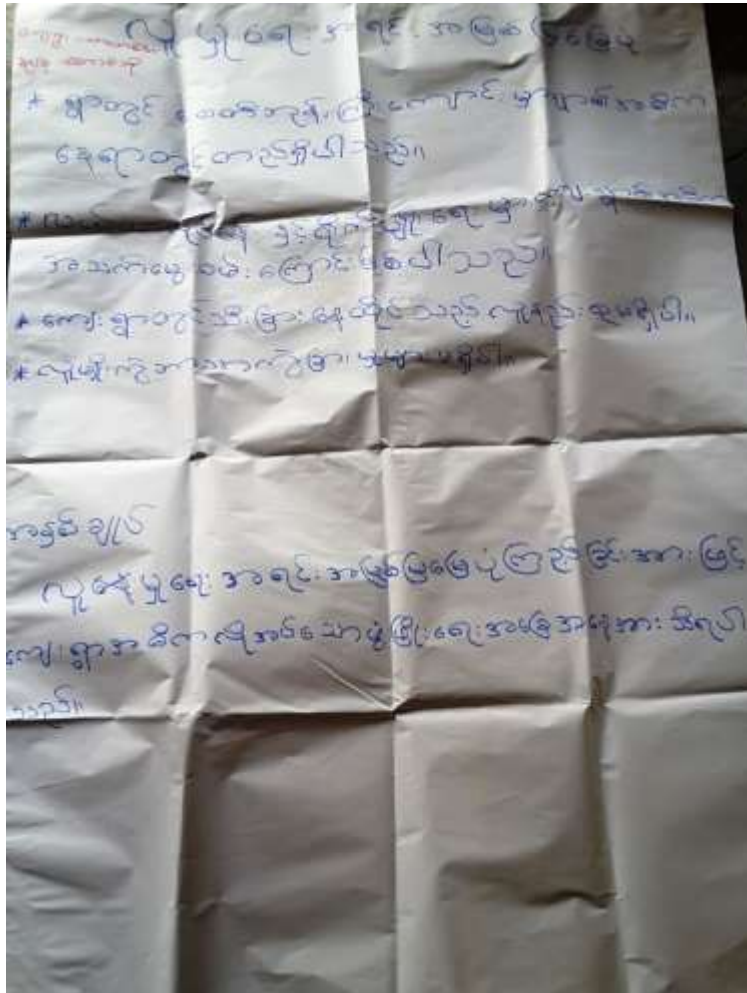 လူမှုရေးအရင်းအမြစ်ပြမြေပုံ
* ရွာတွင် စေတီဘုန်းကြီးကျောင်း မှာရွာ၏အဓိက
နေရာတွင်တည်ရှိပါသည်။
အသက်မွေးဝမ်းကြောင်းဖြစ်ပါသည်။
* ကျေးရွာတွင်သီးခြားနေထိုင်သည့်လူနည်းစုမရှိပါ။
* လူမျိုးကွဲဘာသာကွဲများ မရှိပါ။
အနှစ်ချုပ်
လူမှုရေးအရင်းအမြစ်ပြမြေပုံကြည့်ခြင်းအားဖြင့်
ကျေးရွာအဓိကလိုအပ်သောဖွံ့ဖြိုးရေးအခြေအနေအား သိရပါ
သည်။